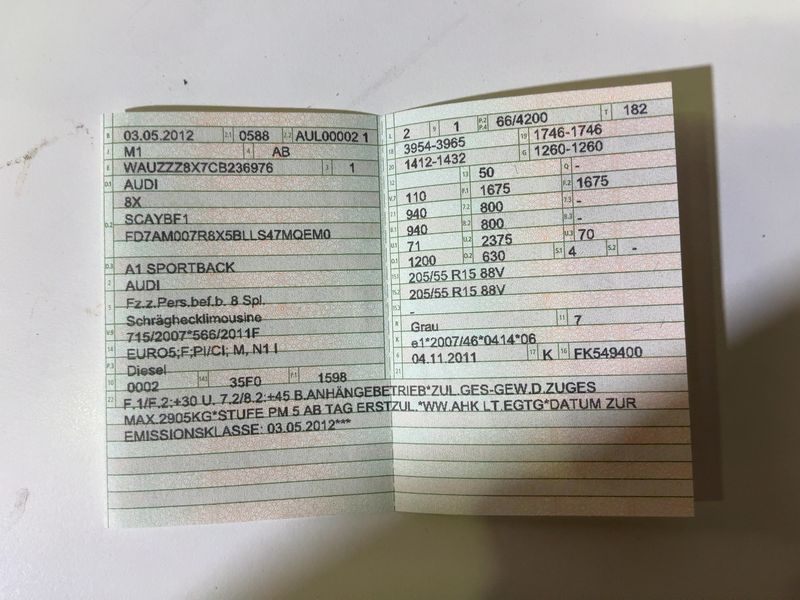 B 03.05.2012 2.1 0588 2.2 AUL00002 1
J M1 4 AB
E WAUZZZ8X7CB236976 3 1
D.1 AUDI
8X
D.2 SCAYBF1
FD7AM007R8X5BLLS47MQEM0
D.3 A1 SPORTBACK
2 AUDI
5 Fz.z.Pers.bef.b. 8 Spl.
Schräghecklimousine
V.9 715/2007*566/2011F
14 EURO5;F;PI/CI; M, N1 I
P.3 Diesel
10 0002 14.1 35F0 P.1 1598
L 2 9 1 P.2 P.4 66/4200 T 182
18 3954-3965 19 1746-1746
20 1412-1432 G 1260-1260
12 13 50 Q -
V.7 110 F.1 1675 F.2 1675
7.1 940 7.2 800 7.3 -
8.1 940 8.2 800 8.3 -
U.1 71 U.2 2375 U.3 70
O.1 1200 O.2 630 S.1 4 S.2 -
15.1 205/55 R15 88V
15.2 205/55 R15 88V
15.3 -
R Grau 11 7
K e1*2007/46*0414*06
6 04.11.2011 17 K 16 FK549400
21
22 F.1/F.2:+30 U. 7.2/8.2:+45 B.ANHÄNGEBETRIEB*ZUL.GES-GEW.D.ZUGES
MAX.2905KG*STUFE PM 5 AB TAG ERSTZUL.*WW.AHK LT.EGTG*DATUM ZUR
EMISSIONSKLASSE: 03.05.2012***